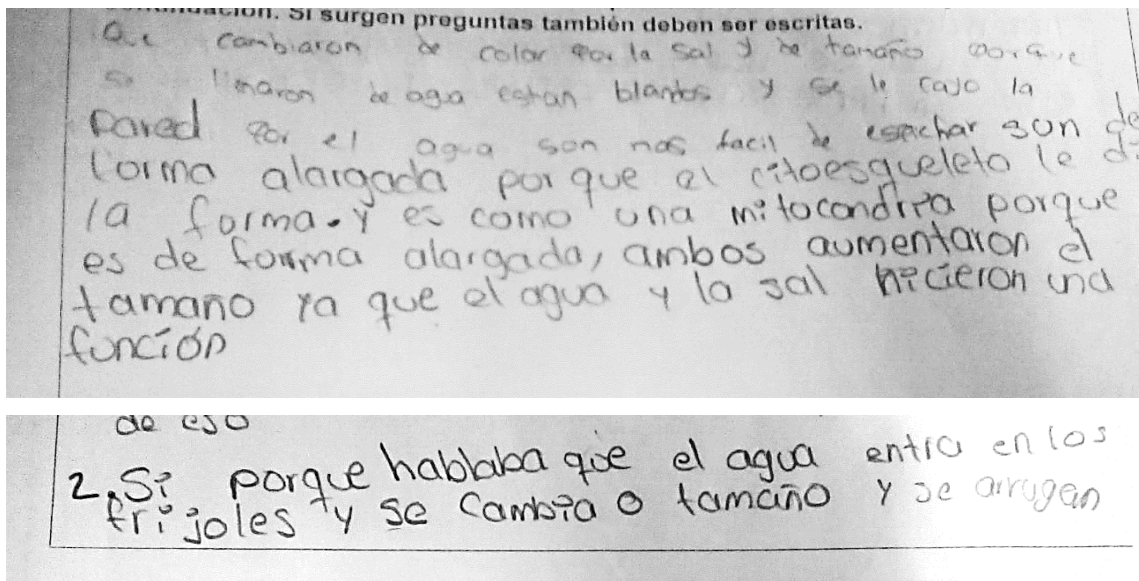 Si surgen preguntas también deben ser escritas.
Que cambiaron de color por la sal y de tamaño porque
se llnaron de agua estan blandos y se le cayo la
pared por el agua son mas facil de espichar son de
forma alargada porque el citoesqueleto le d
la forma. y es como una mitocondria porque
es de forma alargada, ambos aumentaron el
tamaño ya que el agua y la sal hicieron una
función
de eso
2. Si porque hablaba que el agua entra en los
frijoles y se cambia o tamaño y se arrugan